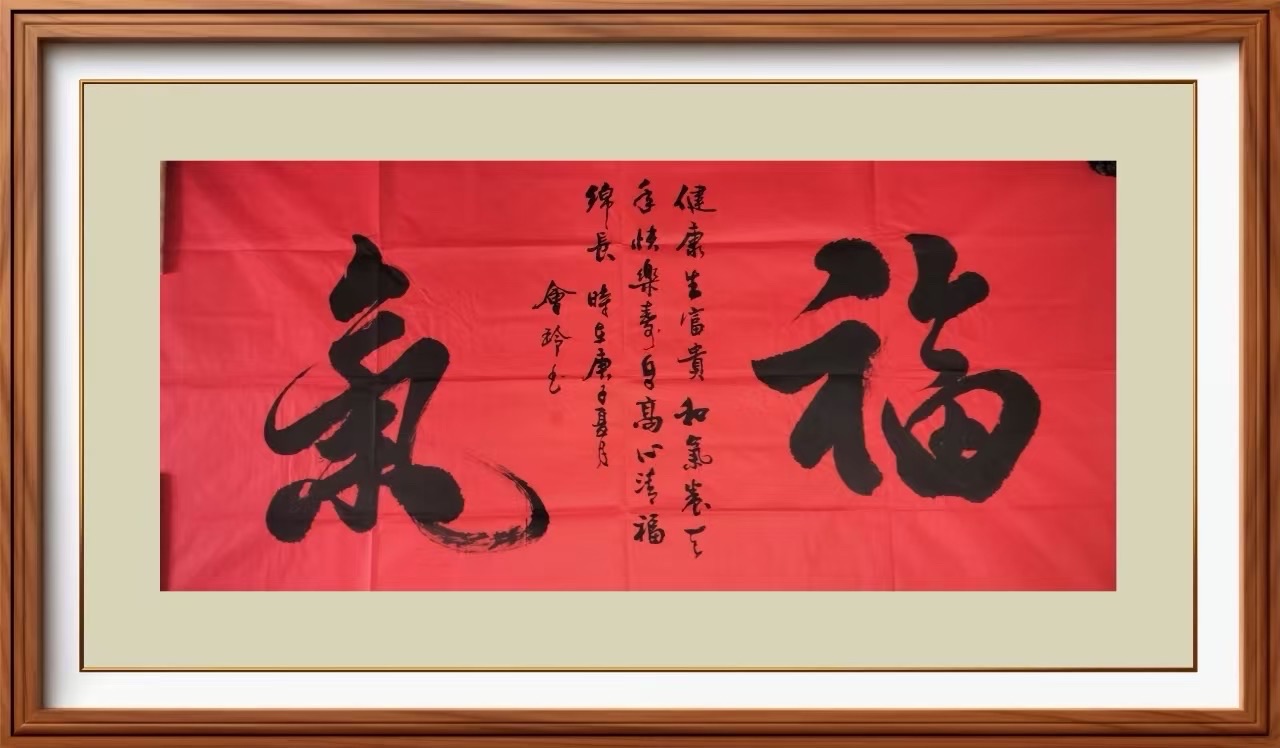 福
健康生富貴和氣養天
年快樂壽自高心清福
綿長 時在庚子夏月
會玲書
氣